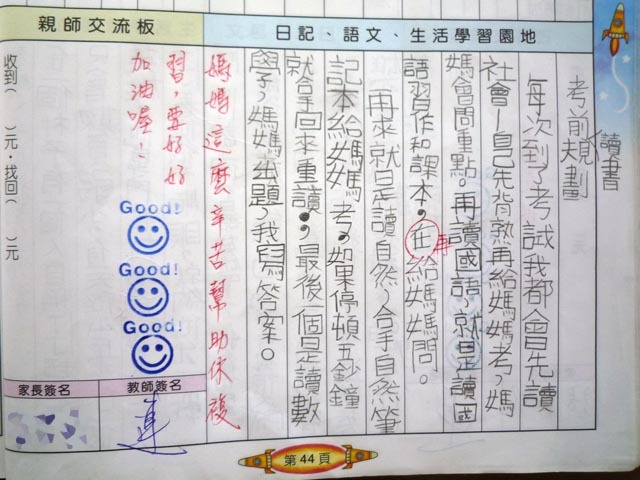 日記、語文、生活學習園地
讀書
考前規劃
每次到了考試我都會先讀
社會,自己先背熟再給媽媽考,媽
媽會問重點。再讀國語,就是讀國
語習作和課本,在給媽媽問。
再
再來就是讀自然,拿自然筆
記本給媽媽考,如果停頓五鈔鐘
就拿回來重讀,最後一個是讀數
學,媽媽出題,我寫答案。
親師交流板
媽媽這麼辛苦幫助你複
習,要好好
加油喔!
Good!
Good!
Good!
收到( )元.找回( )元
教師簽名
連
家長簽名
第44頁